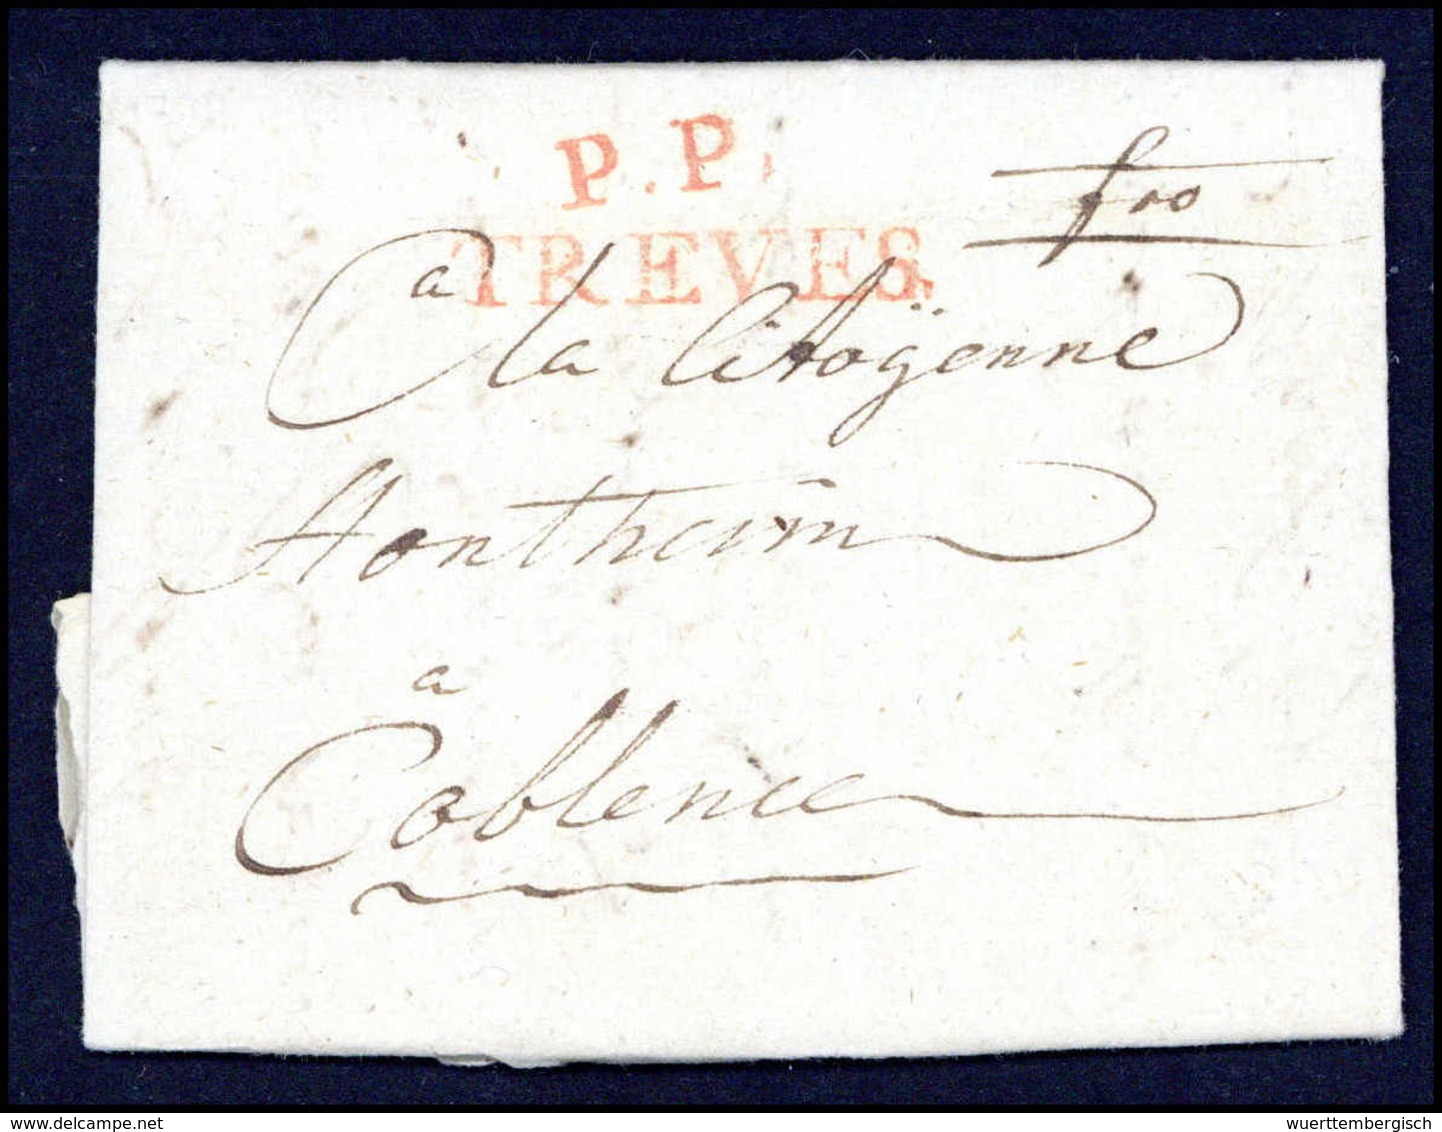 P.P.
TREVES.
fro
a la Citoÿenne
Hontheim
a
Coblence
wuerttembergisch